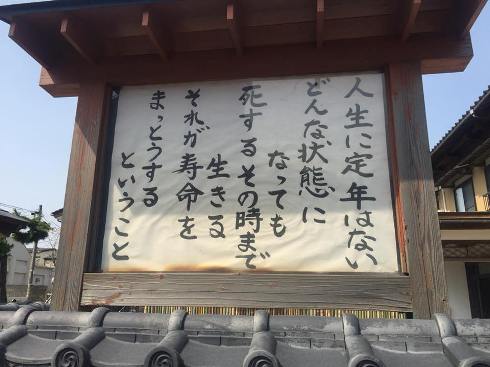 人生に定年はない
どんな状態に
なっても
死するその時まで
生きる
それが寿命を
まっとうする
ということ